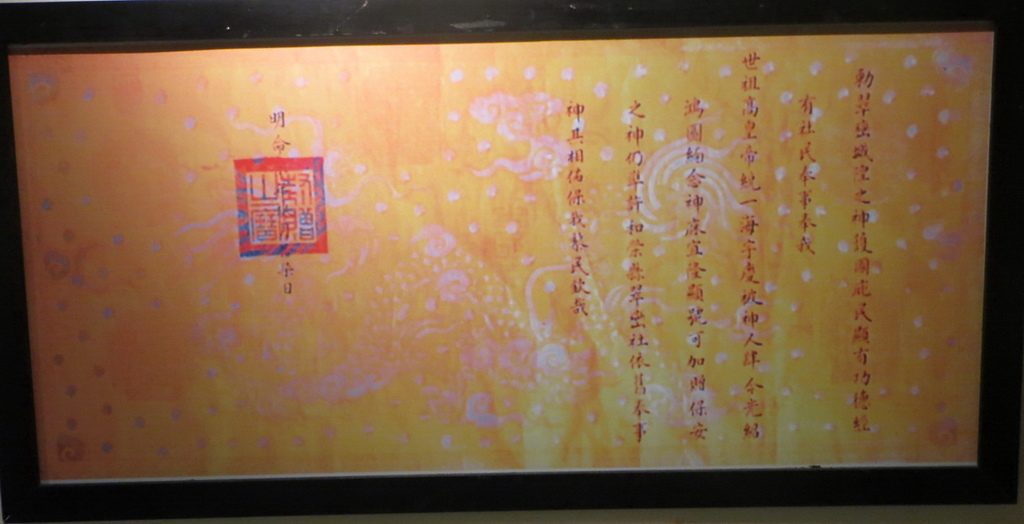 勅翠巒城隍之神護國庇民顯有功德經
有社民奉事奉我
世祖高皇帝統一海宇慶被神人肆今光紹
鴻圖緬念神庥宜隆顯號可加贈保安
之神仍準許和榮縣翠巒社依舊奉事
神其相佑保我黎民欽哉
明命
日